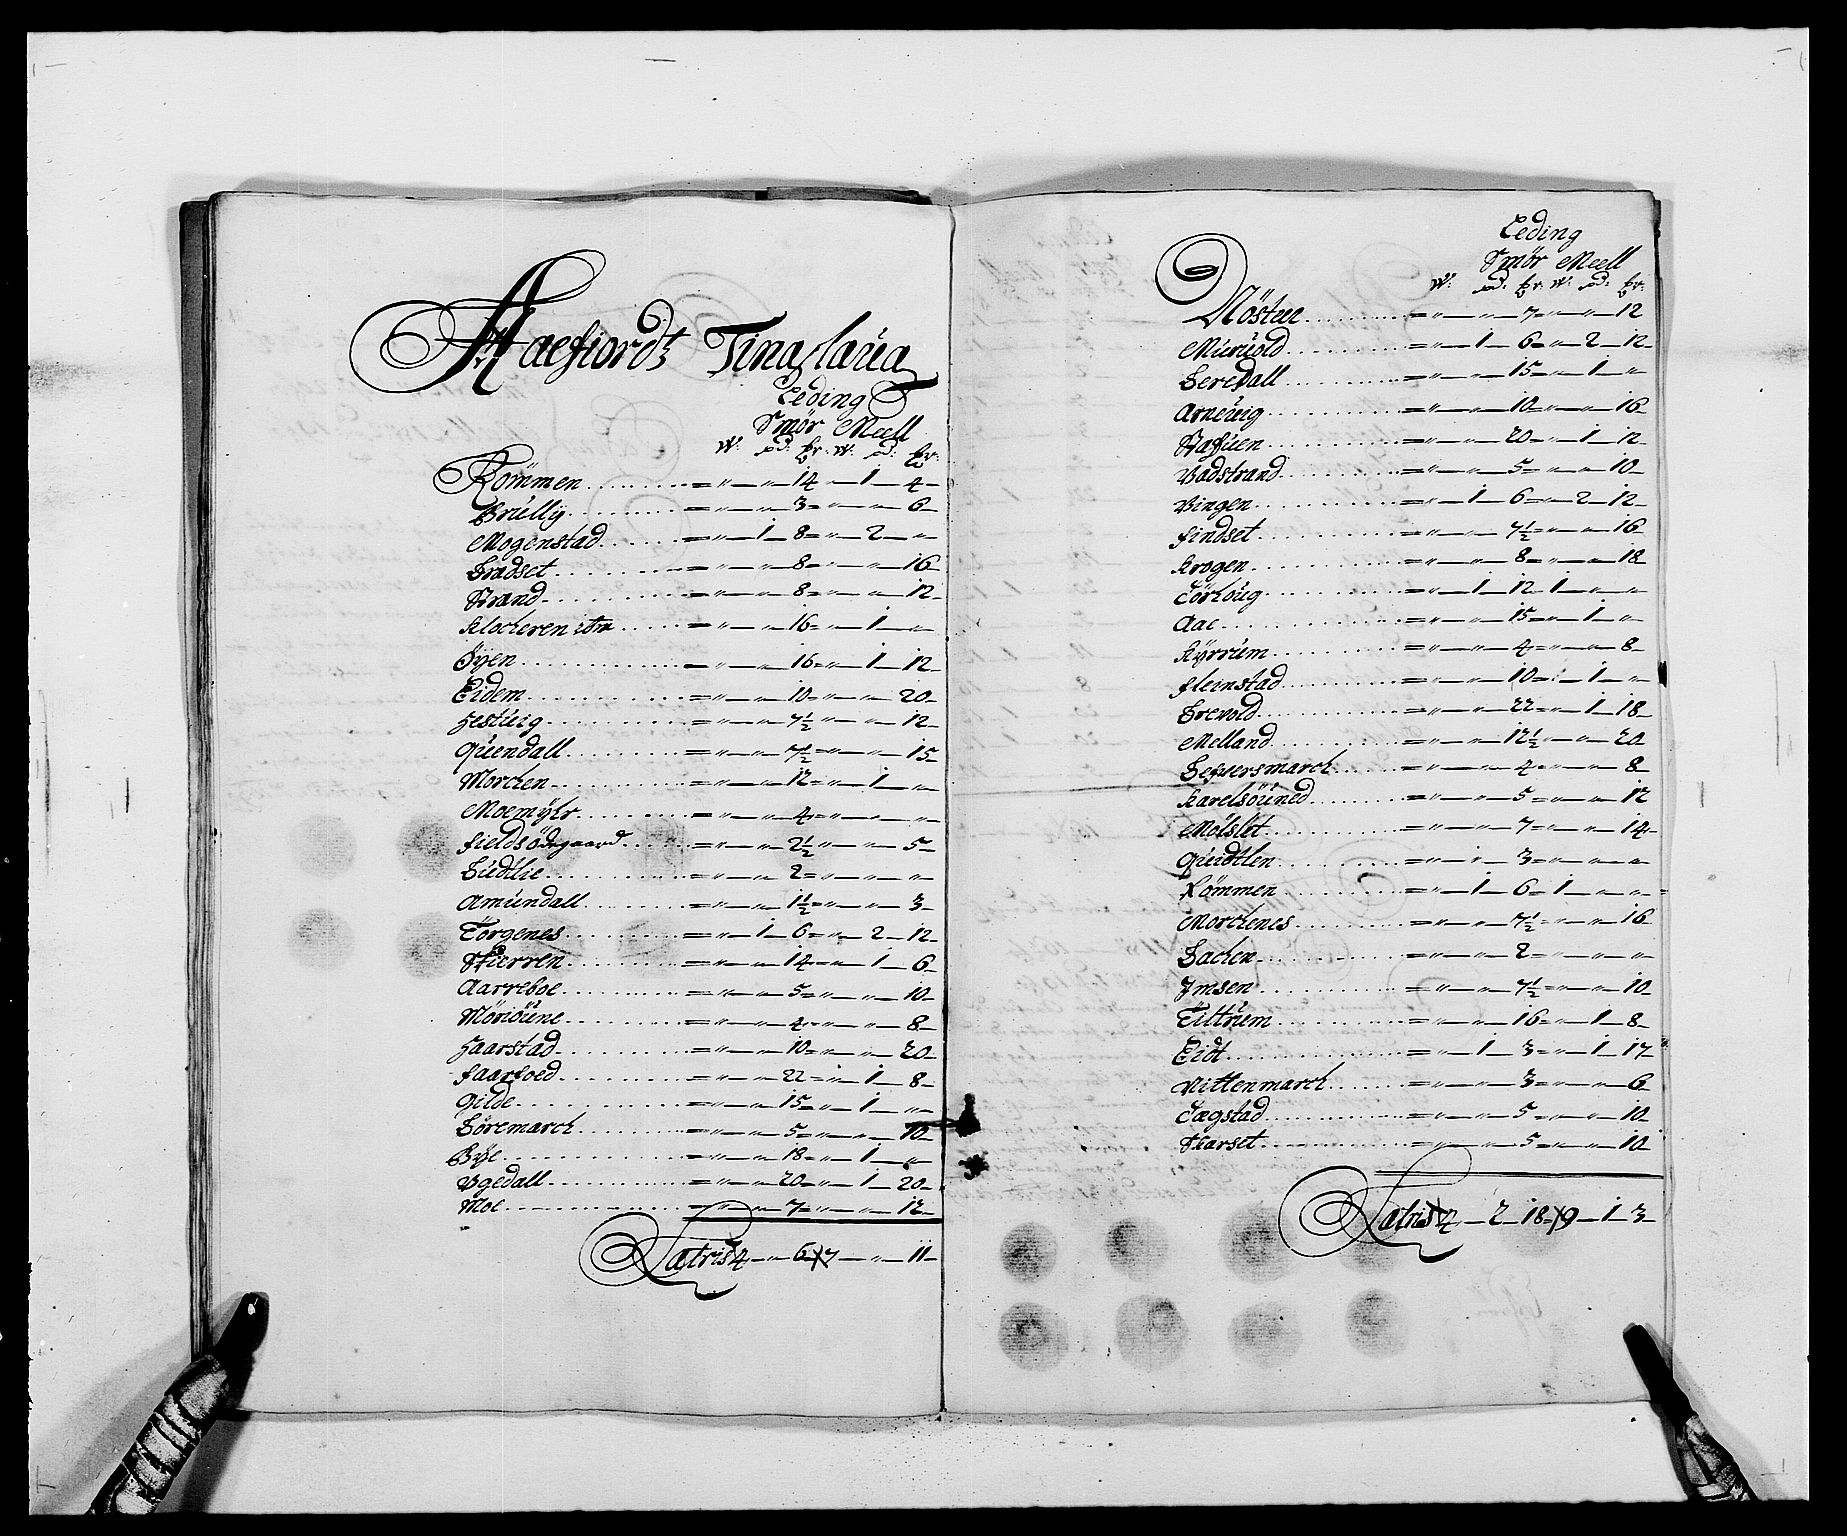 Aaefiordtz Tinglaug
Leding
Smör Meell
W: pd: W: pd:
Römmen = „ — „ — 14 = „ — 1 — 4 —
Brüllÿ = „ — „ — 3 = „ — „ — 6 —
Mogenstad = „ — 1 — 8 = „ — 2 — „
Bradset = „ — „ — 8 = „ — „ — 16
Strand = „ — „ — 8 = „ — „ — 12
Klocheren = „ — „ — 16 = „ — 1 — „
Öÿen = „ — „ — 16 = „ — 1 — 12
Eidem = „ — „ — 10 = „ — „ — 20
Hestüig = „ — „ — 7½ = „ — „ — 12
Qüendall = „ — „ — 7½ = „ — „ — 15
Morchen = „ — „ — 12 = „ — 1 — „
Moemÿhr = „ — „ — 4 = „ — „ — „
Fieldsödegaard = „ — „ — 2½ „ — „ — 5
Südtlie = „ — „ — 2 = „ — „ — „
Amündall = „ — „ — 1½ = „ — „ — 3
Törgenes = „ — 1 — 6 = „ — 2 — 12
Skierren = „ — „ — 14 = „ — 1 — 6
Aarreboe = „ — „ — 5 = „ — „ — 10
Möriöüne = „ — „ — 4 = „ — „ — 8
Haarstad = „ — „ — 10 = „ — „ — 20
Faarfoed = „ — „ — 22 = „ — 1 — 8
Gilde = „ — „ — 15 = „ — 1 — „
Söremarch = „ — „ — 5 = „ — „ — 10
Bÿe = „ — „ — 18 = „ — 1 — „
Ugedall = „ — „ — 20 = „ — 1 — 20
Moe = „ — „ — 7 = „ — „ — 12
Latris 4 — „ — 6 — 7 — „ — 11
Leding
Smör Meell
W: pd: W: pd:
Nösteen = „ — „ — 7 = „ — „ — 12
Müruold = „ — 1 — 6 = „ — 2 — 12
Seredall = „ — „ — 15 = „ — 1 — „
Arneüig = „ — „ — 10 = „ — „ — 16
Stafüen = „ — „ — 20 = „ — 1 — 12
Vadstrand = „ — „ — 5 = „ — „ — 10
Vingen = „ — 1 — 6 = „ — 2 — 12
Findset = „ — „ — 7½ = „ — „ — 16
Krogen = „ — „ — 8 = „ — „ — 18
Törhöüg = „ — 1 — 12 — 1 — „ — „
Aae = „ — „ — 15 = „ — 1 — „
Kÿrrüm = „ — „ — 4 = „ — „ — 8
Fleinstad = „ — „ — 10 = „ — 1 — „
Brevold = „ — „ — 22 = „ — 1 — 18
Melland = „ — „ — 12½ „ — „ — 20
Sefversmarch = „ — „ — 4 = „ — „ — 8
Karelsöüned = „ — „ — 5 = „ — „ — 12
Mölslet = „ — „ — 7 = „ — „ — 14
Qüidtlen = „ — „ — 3 = „ — „ — „
Römmen = „ — 1 — 6 = 1 — „ — „
Morchenes = „ — „ — 7½ = „ — „ — 16
Bachen = „ — „ — 2 = „ — „ — „
Imsen = „ — „ — 7½ = „ — „ — 10
Tiltrüm = „ — „ — 16 = „ — 1 — 8
Eidt = „ — 1 — 3 = „ — 1 — 17
Nittenmarch = „ — „ — 3 = „ — „ — 6
Tægstad = „ — „ — 5 = „ — „ — 10
Skarset = „ — „ — 5 = „ — „ — 10
Latris 4 — 2 — 18 — 9 — 1 — 3